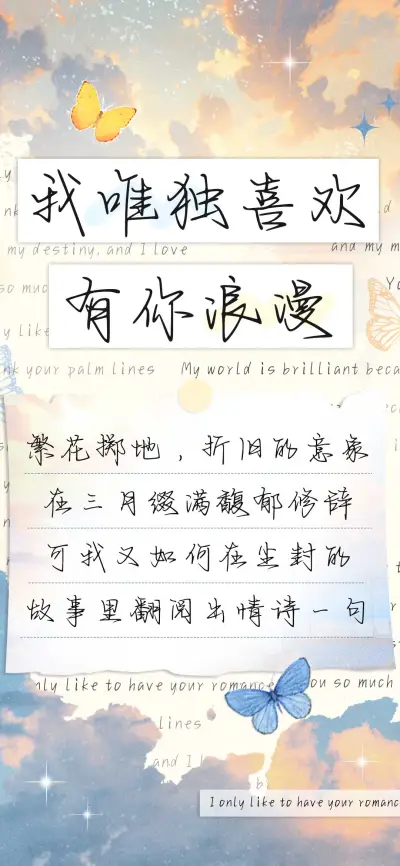 我唯独喜欢
my destiny, and I love
and my m
so muc
有你浪漫
Yo
y like
nk your palm lines
My world is brilliant beca
繁花掷地，折旧的意象
在三月缀满馥郁修辞
可我又如何在尘封的
故事里翻阅出情诗一句
nly like to have your romance
ou so much
lines
and I l
b
I only like to have your romanc